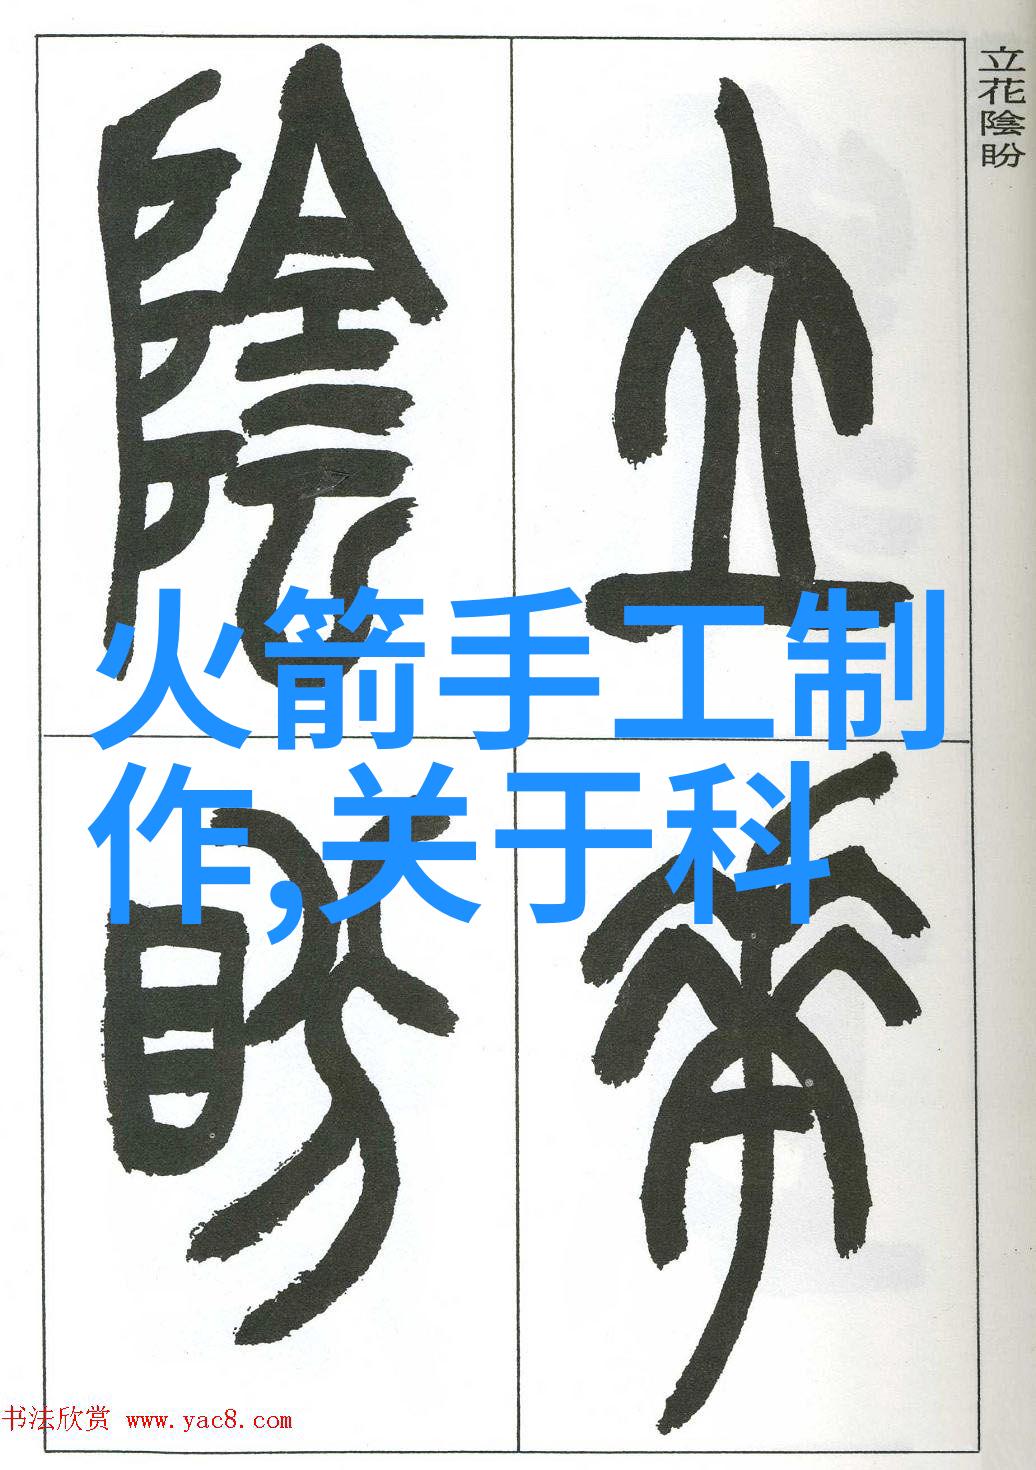 立花陰盼
立花
陰盼
火箭手工制
作,关于科
书法欣赏 www.yac8.com